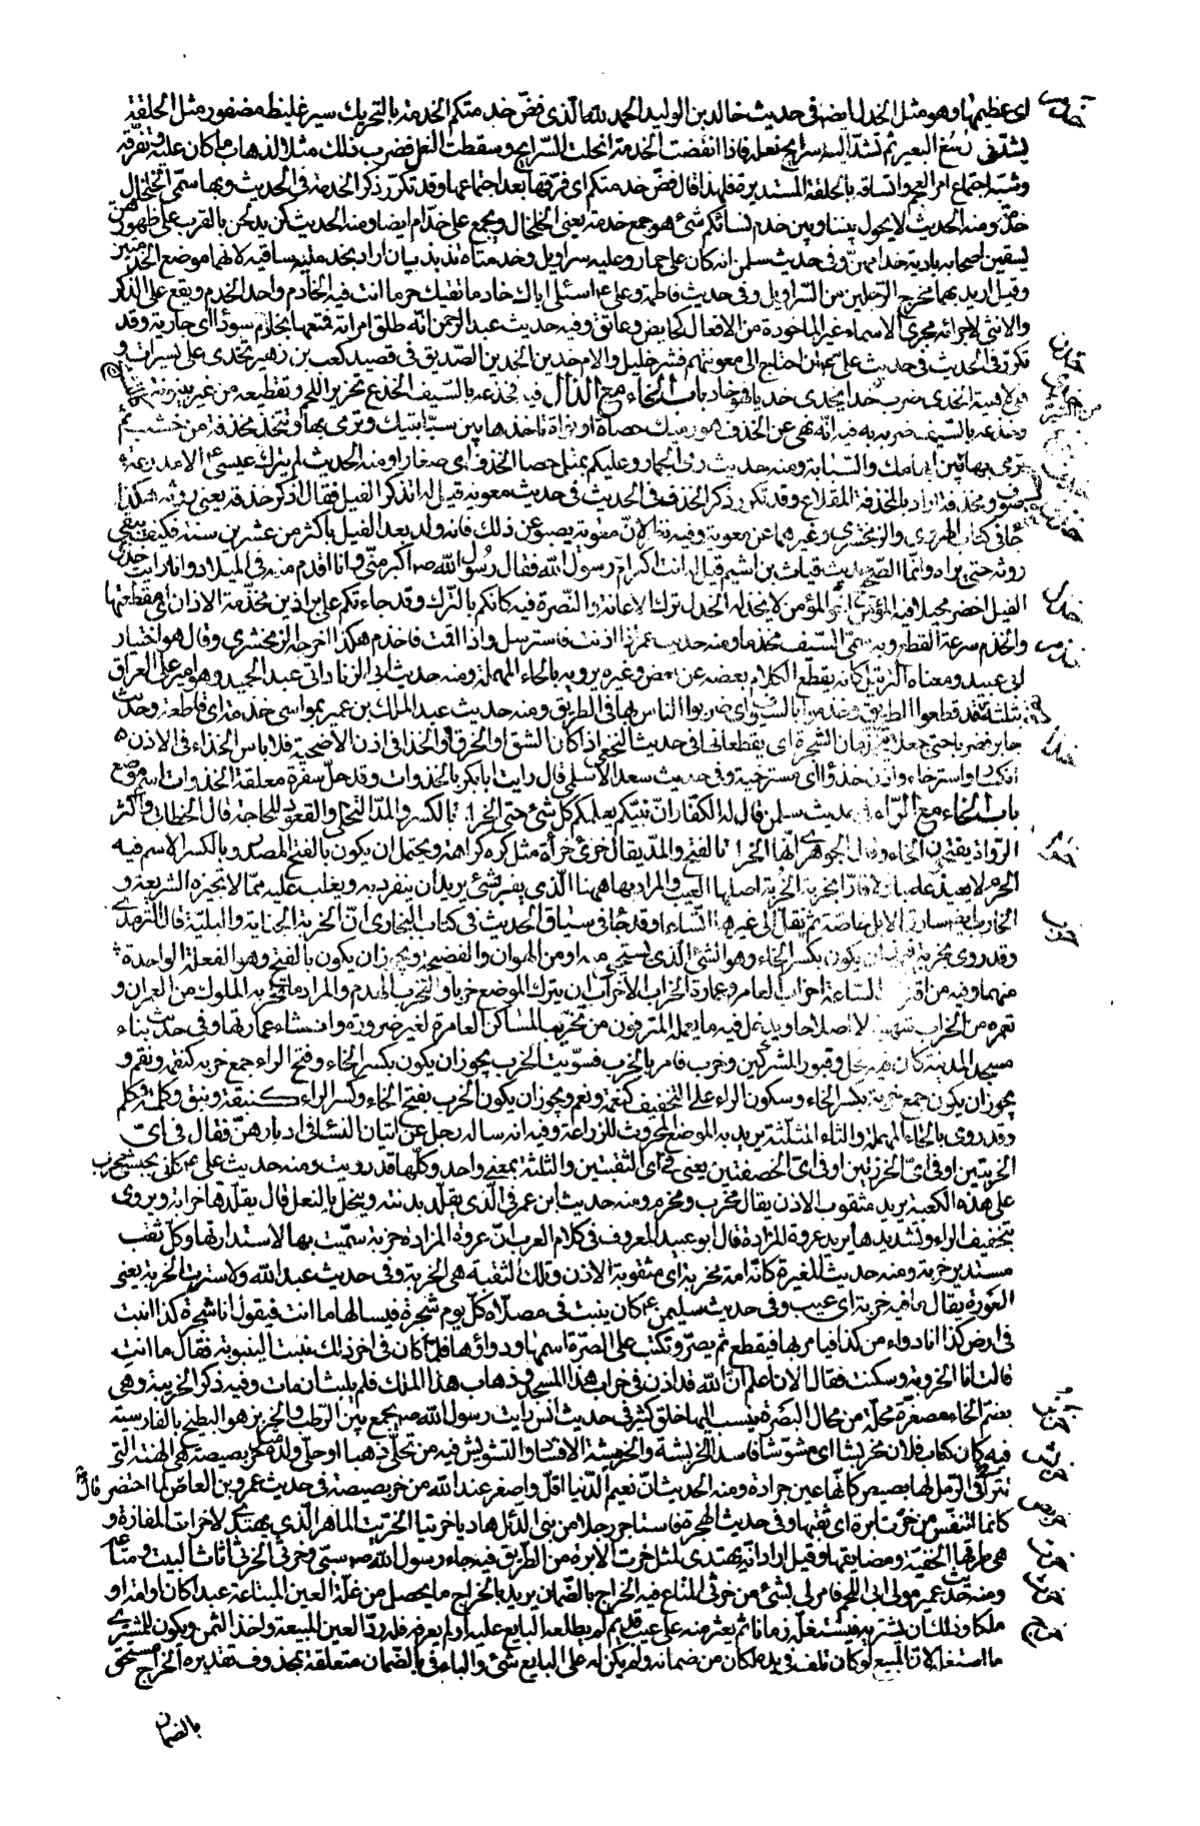 اى عظيمها وهو مثل الخدل ايضا فى حديث خالد بن الوليد الحمد لله الذى فضّ خدمتكم الخدمة بالتحريك سير غليظ مضفور مثل الحلقة
يشدّ فى رسغ البعير ثم تشدّ اليه سرايح نعله فاذا انفضت الخدمة انحلت السرايح وسقطت النعل فضرب ذلك مثلا لذهاب ما كان عليه وتفرقه
وشبه اجتماع امر العجم واتساقه بالحلقة المستديرة فلهذا قال فضّ خدمتكم اى فرّقها بعد اجتماعها وقد تكرّر ذكر الخدمة فى الحديث وبها سمّى الخلخال
خدمة ومنه الحديث لا يحول بيننا وبين خدم نسائكم شئ هو جمع خدمة يعنى الخلخال ويجمع على خدام ايضا ومنه الحديث كن يدلحن بالقرب على ظهورهن
يسقين اصحابه بادية خدامهنّ وفى حديث سلمن انه كان على حمار وعليه سراويل وخدمتاه تذبذبان اراد بخدمتيه ساقيه لانهما موضع الخدمتين
وقيل اريد بهما مخرج الرجلين من السّراويل وفى حديث فاطمة وعلى ع اسئلى اباك خادما تقيك حرّ ما انت فيه الخادم واحد الخدم ويقع على الذكر
والانثى لاجرائه مجرى الاسماء غير الماخوذة من الافعال كحايض وعاتق وفيه حديث عبد الرحمن انّه طلّق امراته فمتعها بخادم سوداء اى جارية وقد
تكرّر فى الحديث فى حديث على ع ان احتاج الى معونتهم فشر خليل والام خدين الخدين الصّديق فى قصيد كعب بن زهير تخدى على يسرات و
هى لاهية الخدى ضرب خدا يخدى خديا فهو خاد باب الخاء مع الذال فيه فخذعه بالسّيف الخذع تحزيز اللحم وتقطيعه من غير بينونة
وخذعه بالسّيف ضربه به فيه انّه نهى عن الخذف هو رميك حصاة او نواة تاخذها بين سبّابتيك وترمى بها او تتخذ مخذفة من خشب ثم
ترمى بها بين ابهامك والسّبابة ومنه حديث رمى الجمار وعليكم بمثل حصا الخذف اى صغارا ومنه الحديث لم يترك عيسى ع الا مدرعة
صوف ومخذفة اراد بالمخذفة المقلاع وقد تكرّر ذكر الخذف فى الحديث فى حديث معوية قيل له اتذكر الفيل فقال اذكر خذقه يعنى روثه هكذا
جاء فى كتاب الهروى والزمخشرى وغيرهما عن معوية وفيه نظر لانّ معوية يصبو عن ذلك فانه ولد بعد الفيل باكثر من عشرين سنة فكيف يبقى
روثه حتى يراه وانّما الصّحيح حديث قباث بن اشيم قيل له انت اكبر ام رسول الله فقال رسول الله ص اكبر منّى وانا اقدم منه فى الميلاد وانا رايت خذق
الفيل اخضر محيلا فيه المؤمن اخو المؤمن لا يخذله الخذل ترك الاعانة والنّصرة فيه كانكم بالتّرك وقد جاءتكم على براذين مخذّمة الاذان اى مقطعتها
والخذم سرعة القطع وبه سمّى السّيف مخذما ومنه حديث عمر اذا اذنت فاسترسل واذا اقمت فاخذم هكذا اخرجه الزمخشرى وقال هو اختيار
ابى عبيد ومعناه الترتيل كانه يقطع الكلام بعضه عن بعض وغيره يرويه بالحاء المهملة ومنه حديث ابى الزناد اتى عبد الحميد وهو امير على العراق
بثلثة نفر قطعوا الطريق وخذموا بالسيف اى ضربوا الناس بها فى الطريق ومنه حديث عبد الملك بن عمير بمواسى خذمة اى قاطعة وحديث
جابر فضربا حتى جعلا يتخذمان الشجرة اى يقطعانها فى حديث النخعى اذا كان الشق او الخرق او الخذا فى اذن الاضحية فلا باس الخذاء فى الاذن
انكسار واسترخاء واذن خذواء اى مسترخية وفى حديث سعد الاسلمى قال رايت ابا بكر بالخذوات وقد حلّ سفرة معلقة الخذوات اسم موضع
باب الخاء مع الرّاء فى حديث سلمن قال له الكفّار انّ نبيّكم يعلمكم كلّ شئ حتى الخراءة بالكسر والمدّ التخلى والقعود للحاجة قال الخطابى واكثر
الرّواة يفتحون الخاء وقال الجوهرى انّها الخراءة بالفتح والمدّ يقال خرئ خراءة مثل كره كراهة ويحتمل ان يكون بالفتح المصدر وبالكسر الاسم فيه
الحرم لا يعيذ عاصيا ولا فارّا بخربة الخربة اصلها العيب والمراد بها ههنا الّذى يفرّ بشئ يريد ان ينفرد به ويغلب عليه ممّا لا تجيزه الشريعة و
الخارب ايضا سارق الابل خاصّة ثم نقل الى غيرها اتّساعا وقد جاء فى سياق الحديث فى كتاب البخارى انّ الخربة الجناية والبليّة قال الترمذى
وقد روى بخزية فيجوز ان يكون بكسر الخاء وهو الشئ الّذى يستحيى منه او من الهوان والفضيحة ويجوز ان يكون بالفتح وهو الفعلة الواحدة
منهما وفيه من اقتراب السّاعة اخراب العامر وعمارة الخراب الاخراب ان يترك الموضع خربا والتخريب الهدم والمراد ما يخربه الملوك من العمران و
تعمره من الخراب شهوة لا اصلاحا ويدخل فيه ما يعمله المترفون من تخريب المساكن العامرة لغير ضرورة وانشاء عمارتها وفى حديث بناء
مسجد المدينة كان فيه نخل وقبور المشركين وخرب فامر بالخرب فسوّيت الخرب يجوز ان يكون بكسر الخاء وفتح الراء جمع خربة كنقمة ونقم و
يجوز ان يكون جمع خربة بكسر الخاء وسكون الراء على التخفيف كنعمة ونعم ويجوز ان يكون الخرب بفتح الخاء وكسر الراء كنبقة ونبق وكلمة وكلم
وقد روى بالحاء المهملة والثاء المثلّثة يريد به الموضع المحروث للزراعة وفيه انه ساله رجل عن اتيان النساء فى ادبارهنّ فقال فى اىّ
الخربتين او فى اىّ الخرزتين او فى اىّ الخصفتين يعنى فى اى الثقبتين والثلثة بمعنى واحد وكلّها قد رويت ومنه حديث على ع كانى بحبشى مخرب
على هذه الكعبة يريد مثقوب الاذن يقال مخرب ومخرم ومنه حديث ابن عمر فى الّذى يقلّد بدنته ويبخل بالنعل قال يقلّدها خرابة ويروى
بتخفيف الراء وتشديدها يريد عروة المزادة قال ابو عبيد المعروف فى كلام العرب انّ عروة المزادة خربة سمّيت بها لاستدارتها وكلّ ثقب
مستدير خربة ومنه حديث المغيرة كانّه امة مخربة اى مثقوبة الاذن وتلك الثقبة هى الخربة وفى حديث عبد الله ولا سترت الخربة يعنى
العورة يقال ما فيه خربة اى عيب وفى حديث سليمن ع كان ينبت فى مصلّاه كلّ يوم شجرة فيسالها ما انت فيقول انا شجرة كذا انبت
فى ارض كذا انا دواء من كذا فيامر بها فيقطع ثم يصرّ وتكتب على الصّرة اسمها ودواؤها فلما كان فى اخر ذلك نبتت الينبوتة فقال ما انت
قالت انا الخروبة وسكتت فقال الان اعلم انّ الله قد اذن فى خراب هذا المسجد وذهاب هذا الملك فلم يلبث ان مات وفيه ذكر الخريبة وهى
بضم الخاء مصغّرة محلّة من محال البصرة ينسب اليها خلق كثير فى حديث انس رايت رسول الله ص يجمع بين الرّطب والخربز هو البطيخ بالفارسية
فيه كان كتاب فلان مخربشا اى مشوّشا فاسدا الخربشة والخرمشة الافساد والتشويش فيه من تحلّى ذهبا او حلّى ولده مثل خربصيصة هى الهنة التى
تتراى فى الرّمل لها بصيص كانّها عين جرادة ومنه الحديث انّ نعيم الدّنيا اقلّ واصغر عند الله من خربصيصة فى حديث عمرو بن العاص لما احتضر قال
كانما اتنفس من خرت ابرة اى ثقبها وفى حديث الهجرة فاستاجر رجلا من بنى الدّئل هاديا خرّيتا الخرّيت الماهر الّذى يهتدى لاخرات المفازة و
هى طرقها الخفيّة ومضايقها وقيل اراد انّه يهتدى لمثل خرت الابرة من الطّريق فيه جاء رسول الله ص سبى وخرثى الخرثى اثاث البيت ومتاعه
ومنه حديث عمير مولى ابى اللحم فامر لى بشئ من خرثى المتاع فيه الخراج بالضّمان يريد بالخراج ما يحصل من غلّة العين المبتاعة عبدا كان او امة او
ملكا وذلك ان يشتريه فيستغله زمانا ثم يعثر منه على عيب قديم لم يطلعه البايع عليه او لم يعرفه فله ردّ العين المبيعة واخذ الثمن ويكون للمشترى
ما استغله لانّ المبيع لو كان تلف فى يده لكان من ضمانه ولم يكن له على البايع شئ والباء فى بالضّمان متعلقة بمحذوف تقديره الخراج مستحق
بالضمان